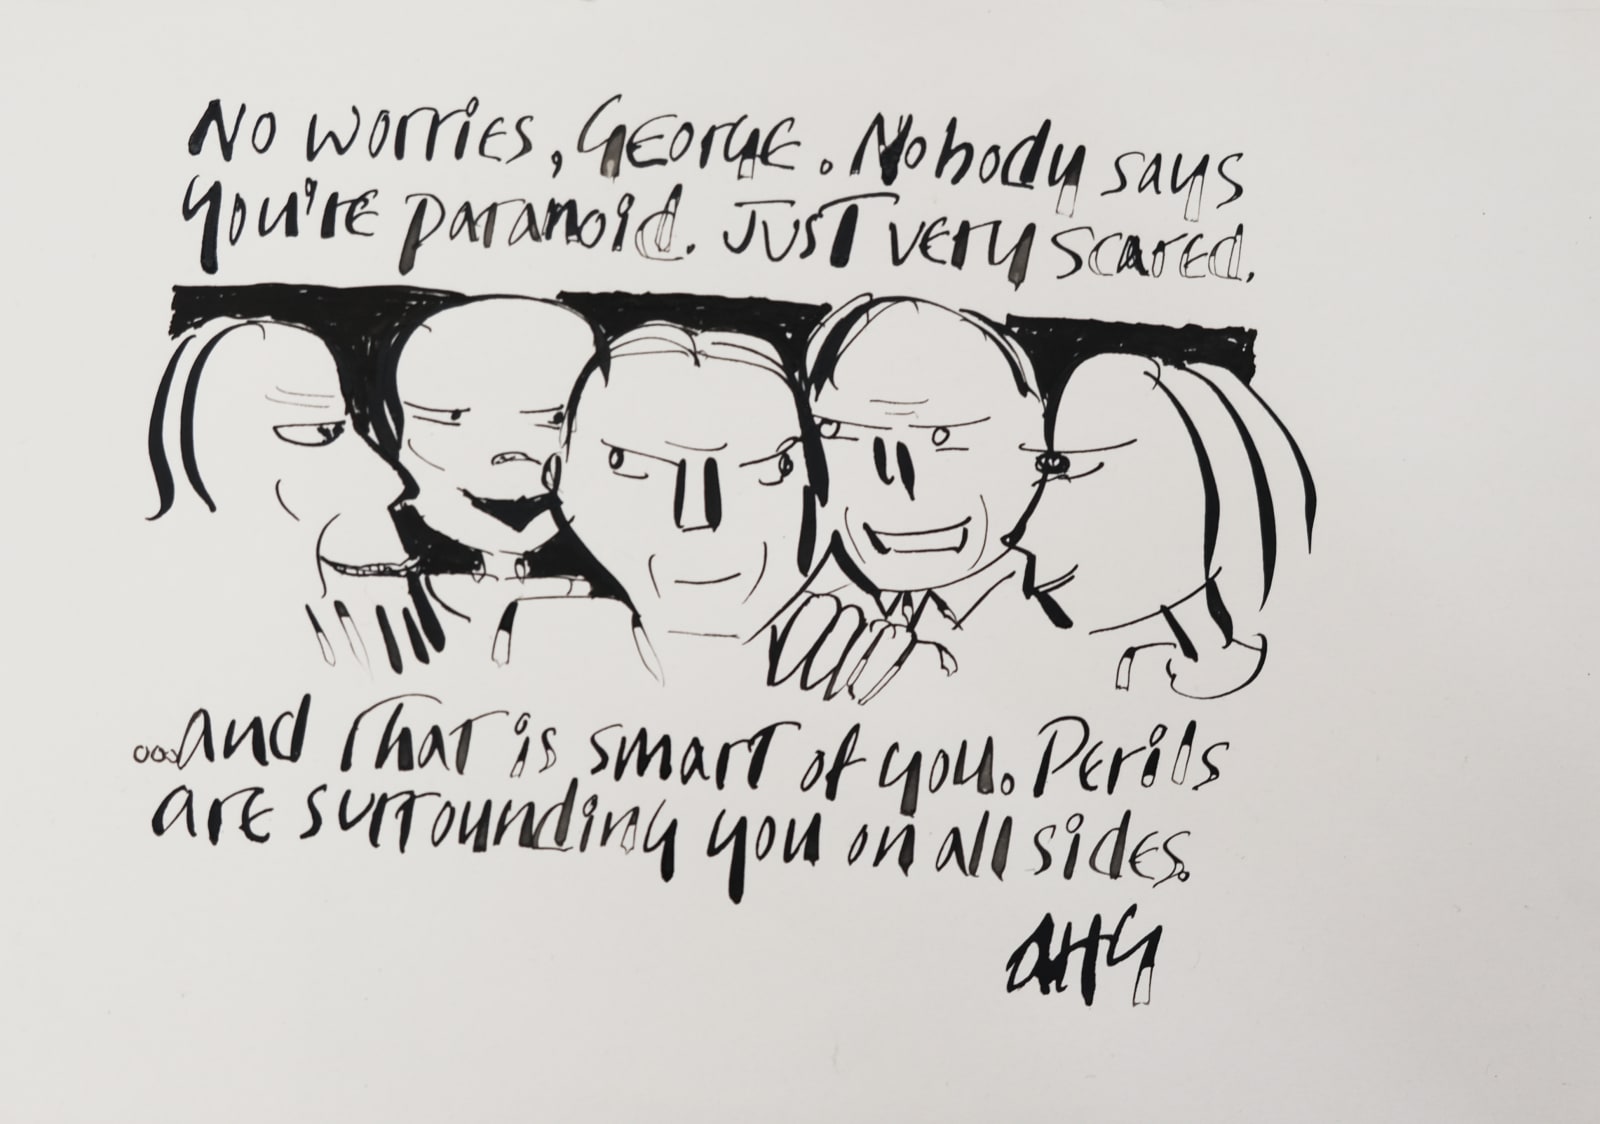 No worries, George. Nobody says
you're paranoid. Just very scared.
...and that is smart of you. Perils
are surrounding you on all sides.
AHG